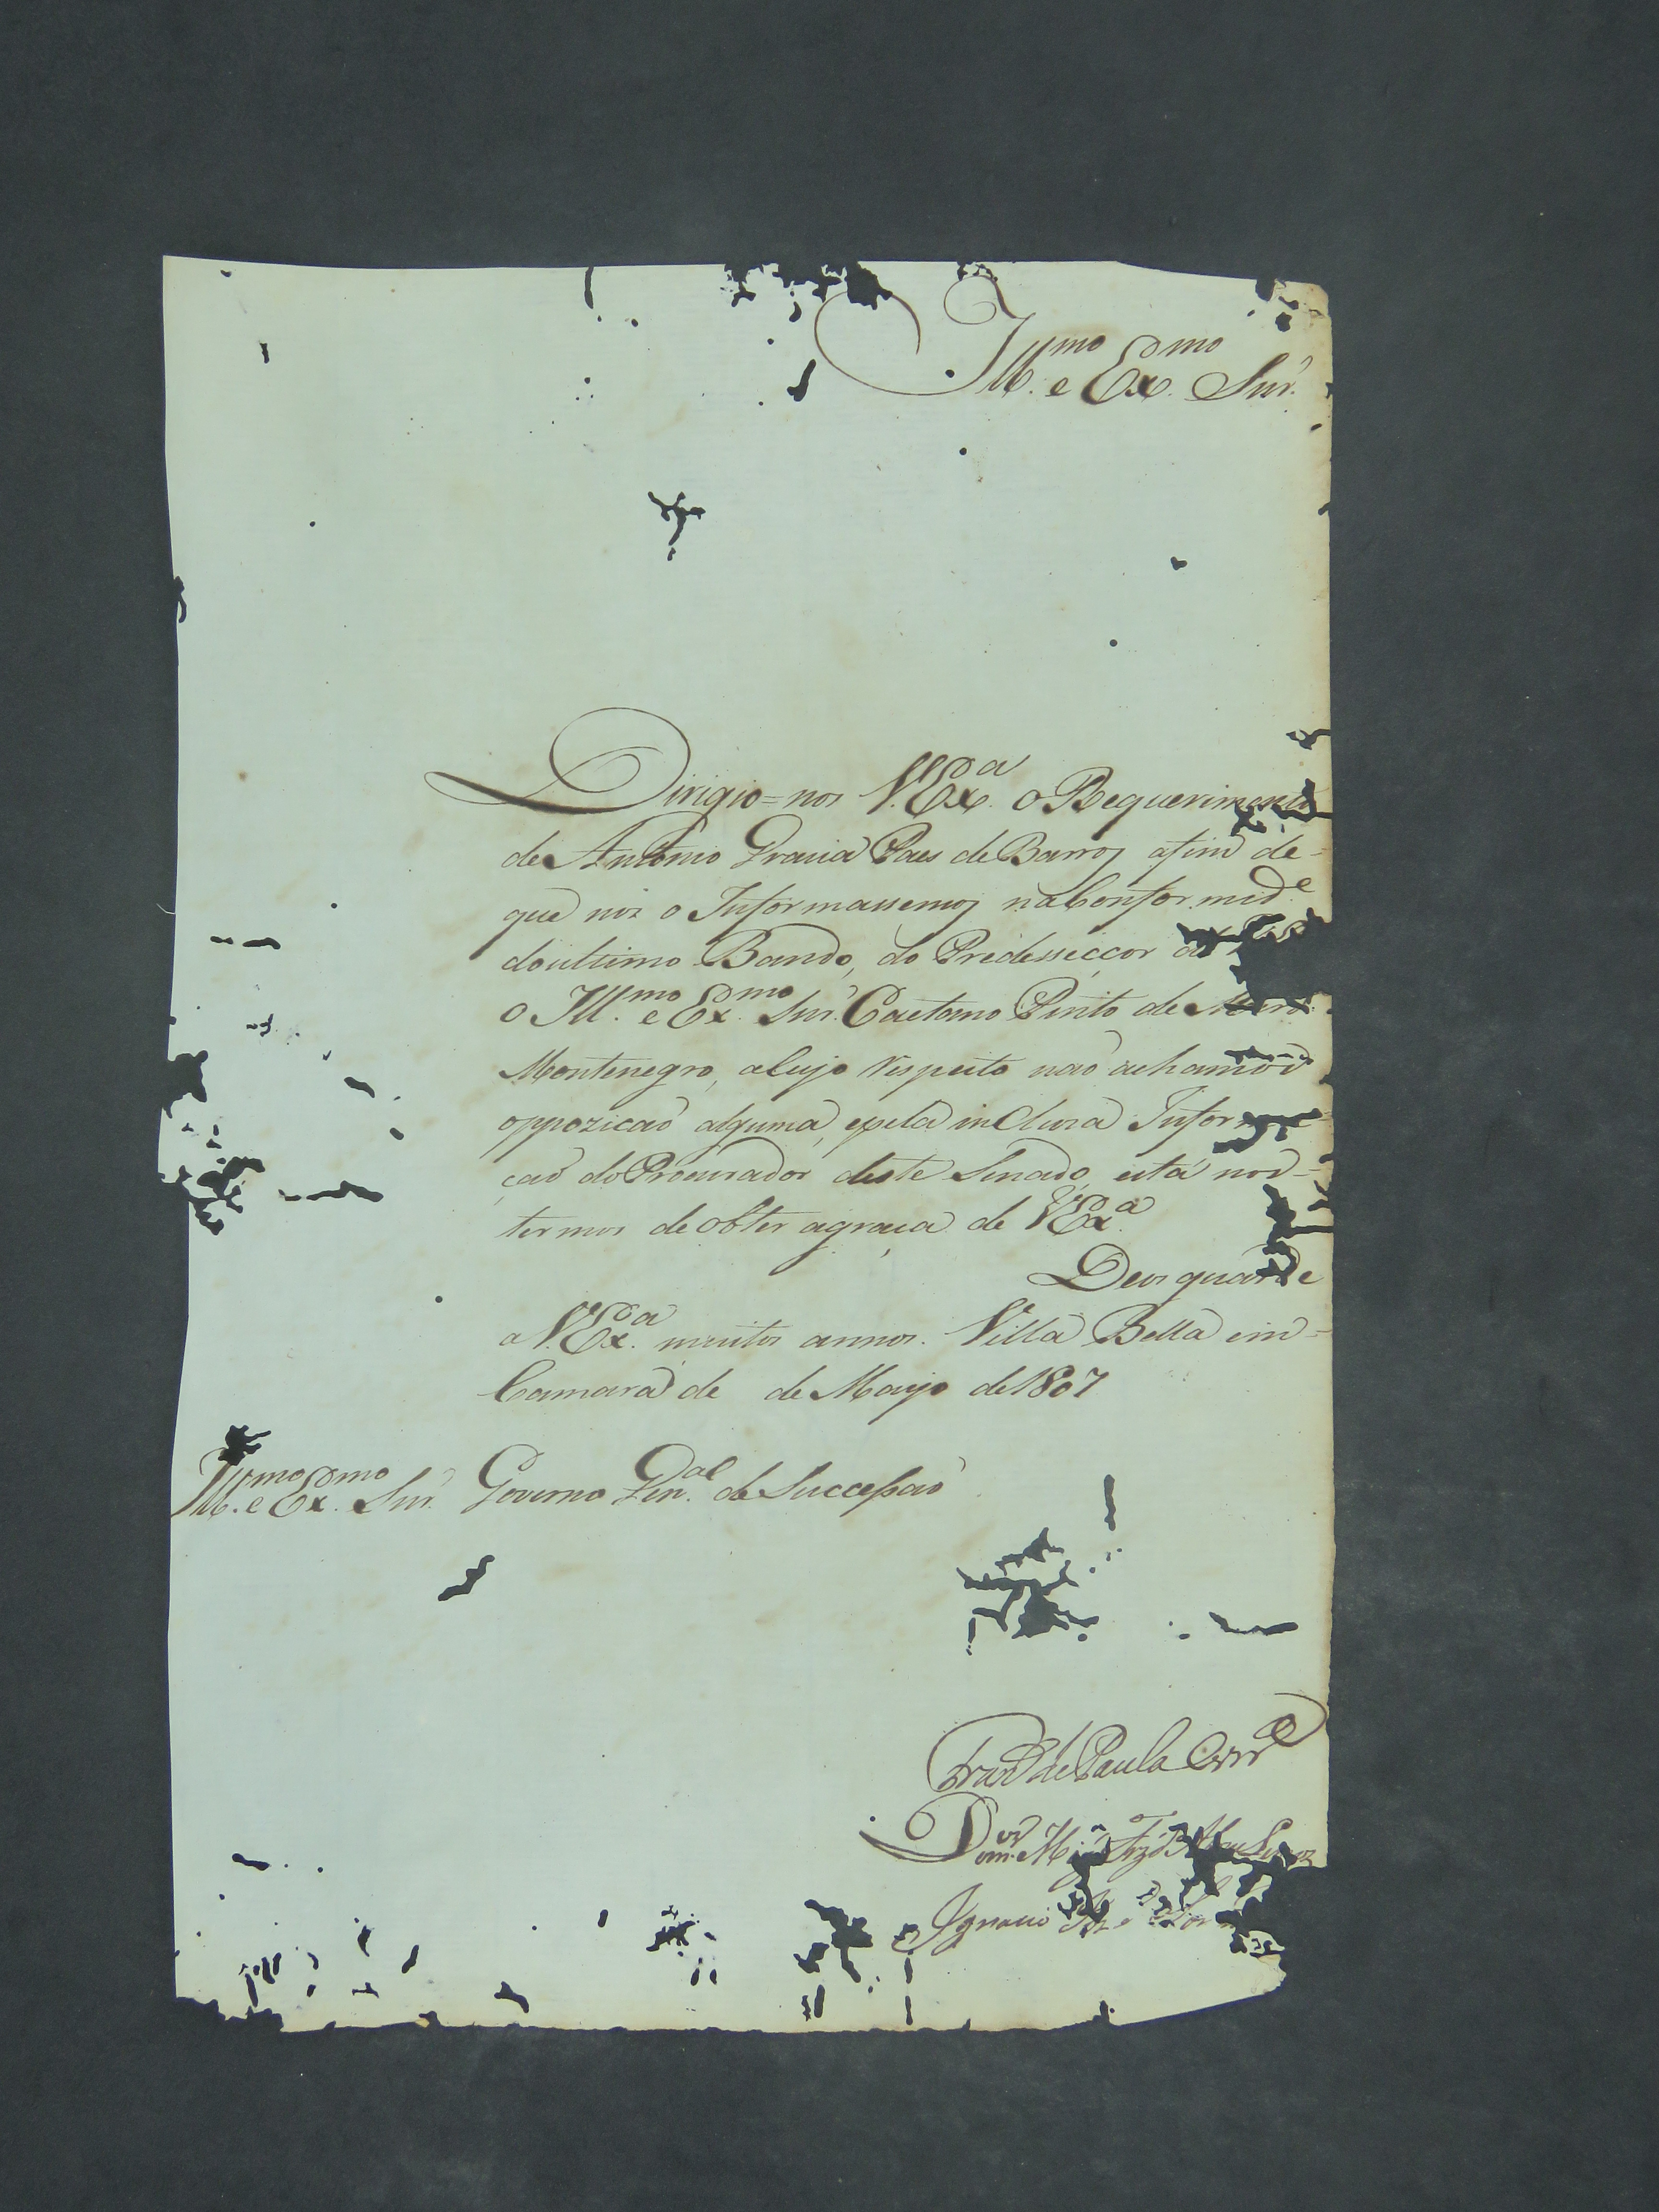 Ill.mo e Ex.mo Snr.
Dirigio=nos V.Ex.a o Requerimento
de Antonio Gracia Paes de Barros afim de=
que nos o Informassemos na Conformid.e
do ultimo Bando, do Predesseccor de
o Ill.mo e Ex.mo Snr. Caetano Pinto de
Montenegro, a Cujo respeito naõ achamos
oppoziçaõ alguma, epela incluza Informa
çaõ do Procurador deste Senado, está nos=
termos de obter agraça de V.Ex.a
Deos guarde
a V.Ex.a muitos annos. Villa Bella em=
Camara de de Mayo de 1807
Ill.mo e Ex.mo Snr. Governo Gen.al de Successaõ
Fran.co de Paula Corr.a
Dom.os
Ignacio